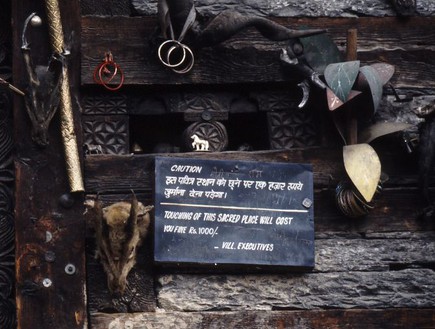 CAUTION
इस पवित्र स्थान को छूने पर एक हज़ार रुपये
जुर्माना देना पड़ेगा।
TOUCHING OF THIS SACRED PLACE WILL COST
YOU FINE Rs. 1000/-
- VILL. EXECUTIVES